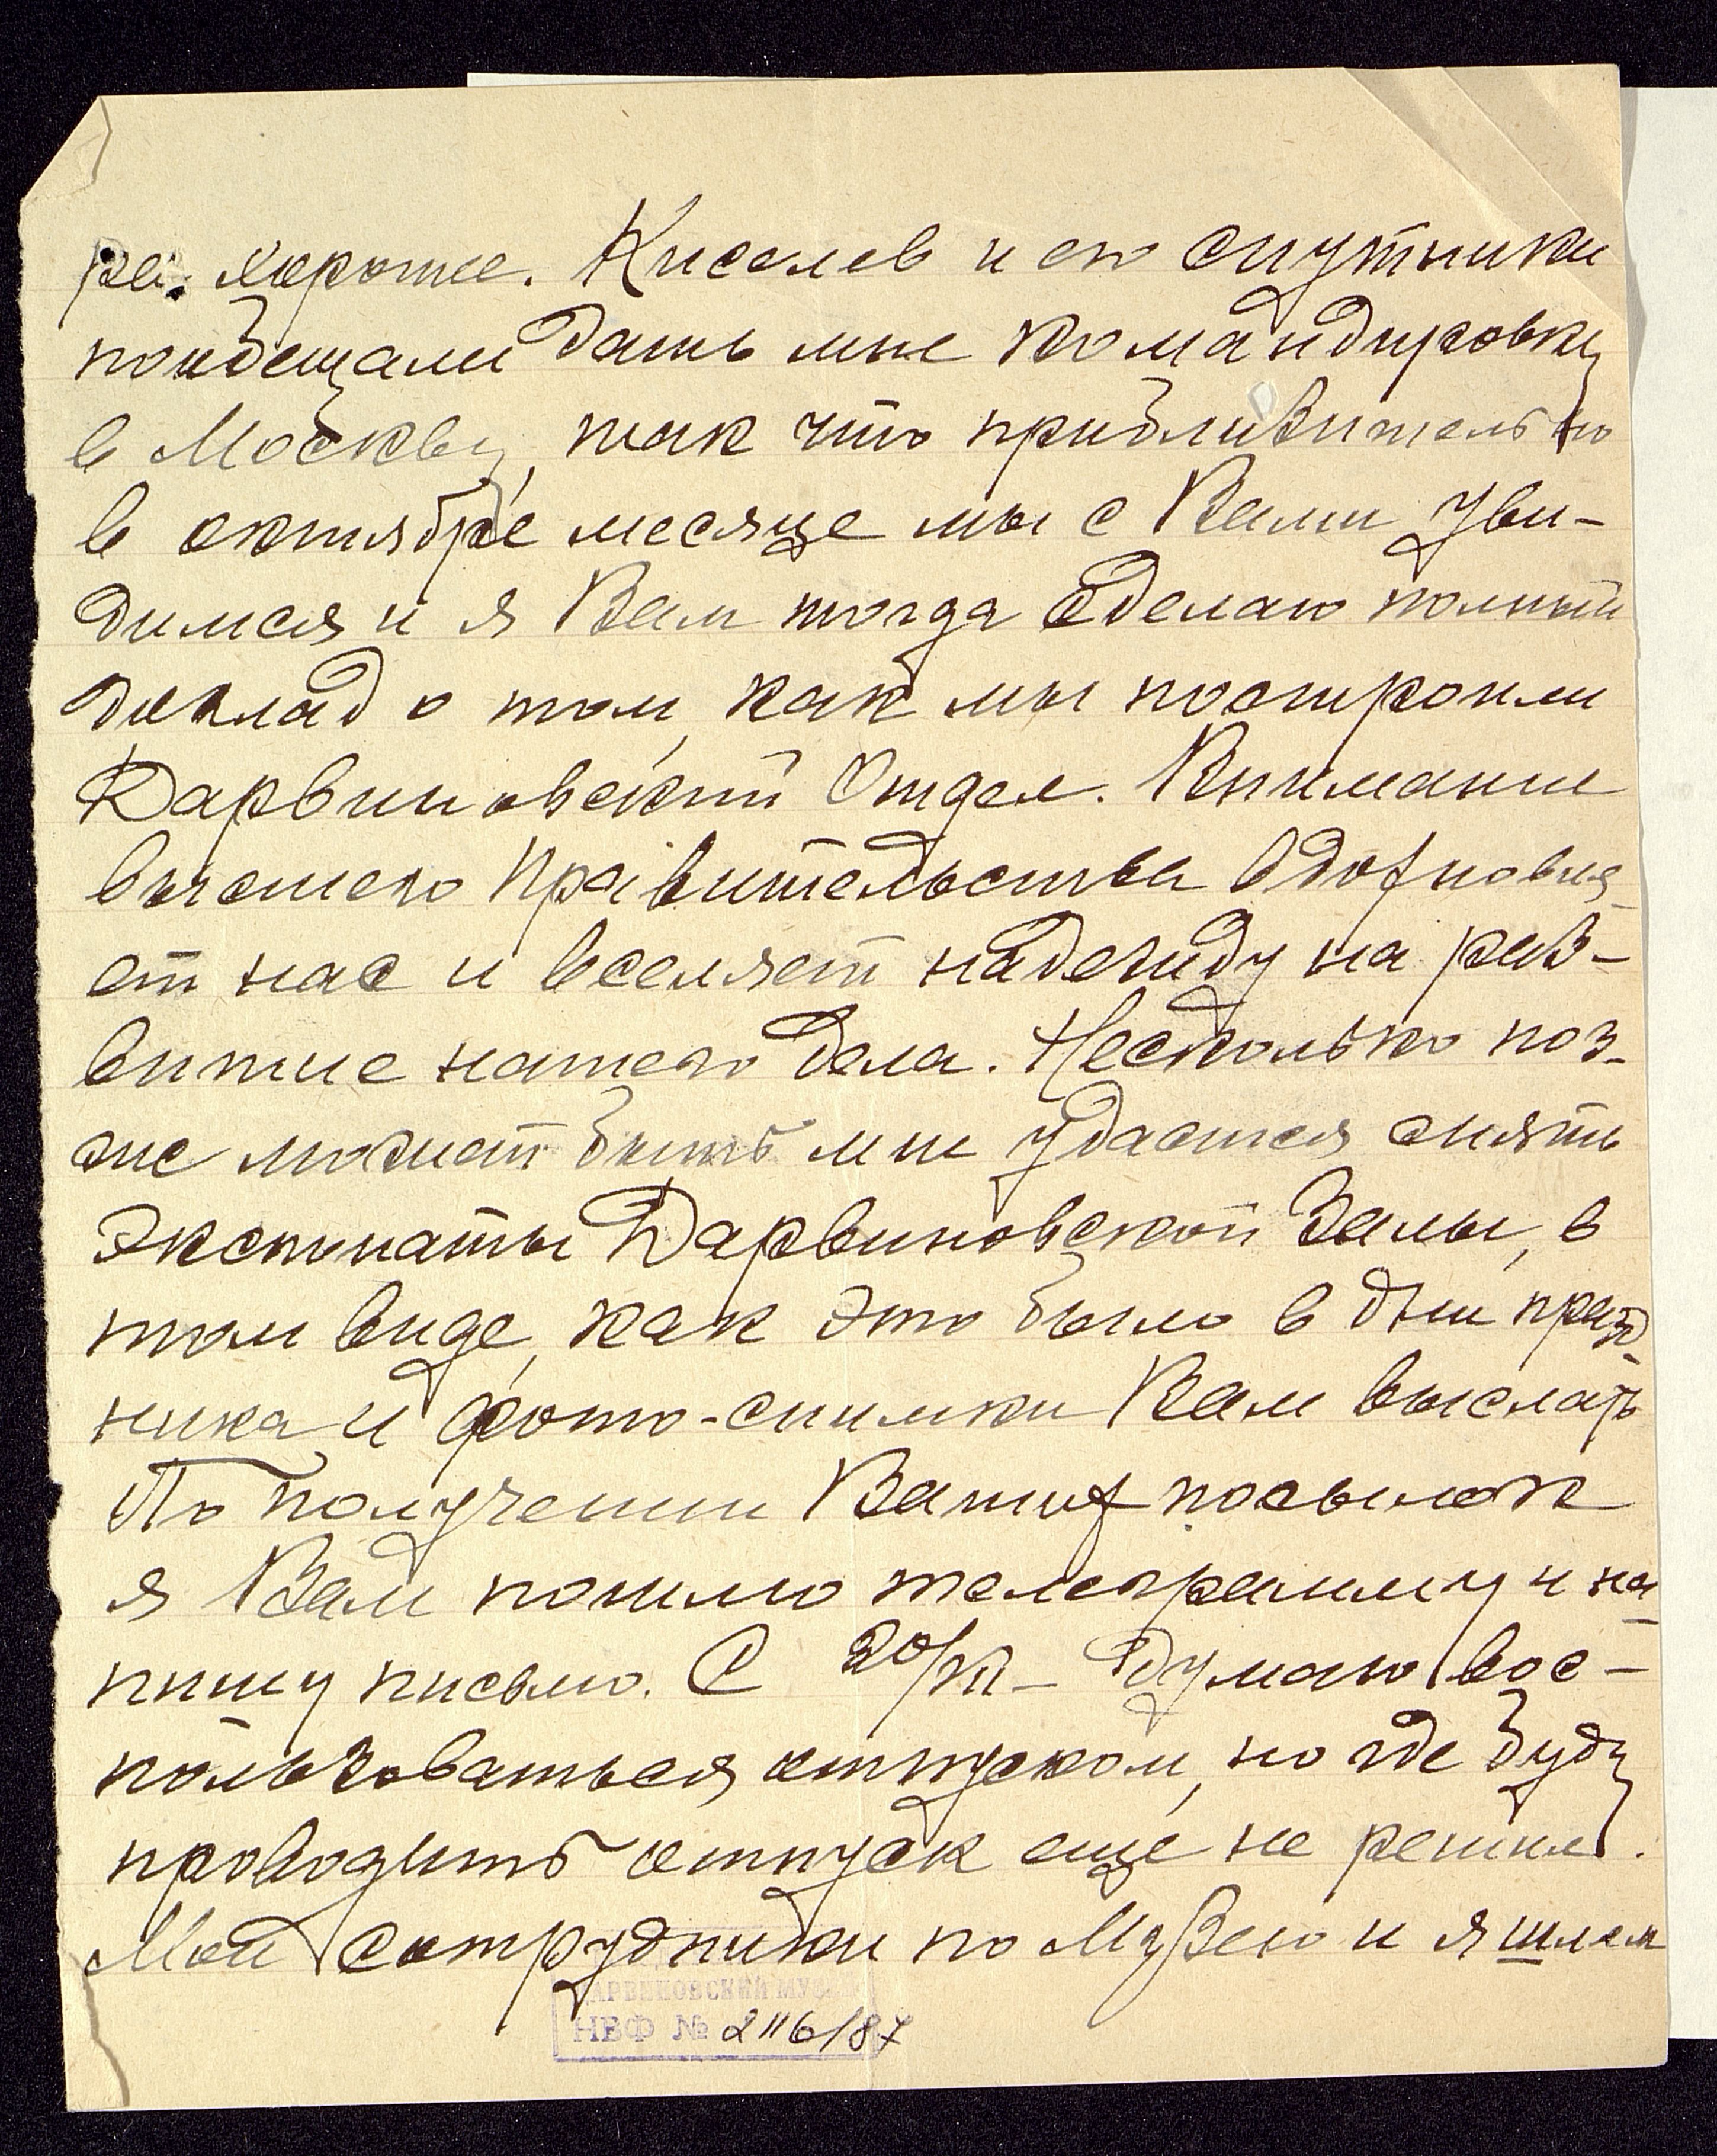 ра. хорошие. Киселев и его спутники
пообещали дать мне командировку
в Москву, так что приблизительно
в октябре месяце мы с Вами уви-
димся и я Вам тогда сделаю полный
доклад о том, как мы построили
Дарвиновский Отдел. Внимание
высшего Правительства вдохновля-
ет нас и вселяет надежду на раз-
витие нашего дела. Несколько поз-
же может быть мне удастся снять
экспонаты Дарвиновской Залы, в
том виде, как это было в дни празд-
ника и фото-снимки Вам выслать
По получении Ваших посылок
я Вам пошлю телеграмму и на-
пишу письмо. С 20/VII – думаю вос-
пользоваться отпуском, но где буду
проводить отпуск еще не решил.
Мои сотрудники по Музею и я шлем
ДАРВИНОВСКИЙ МУЗ
НВФ № 2116/87